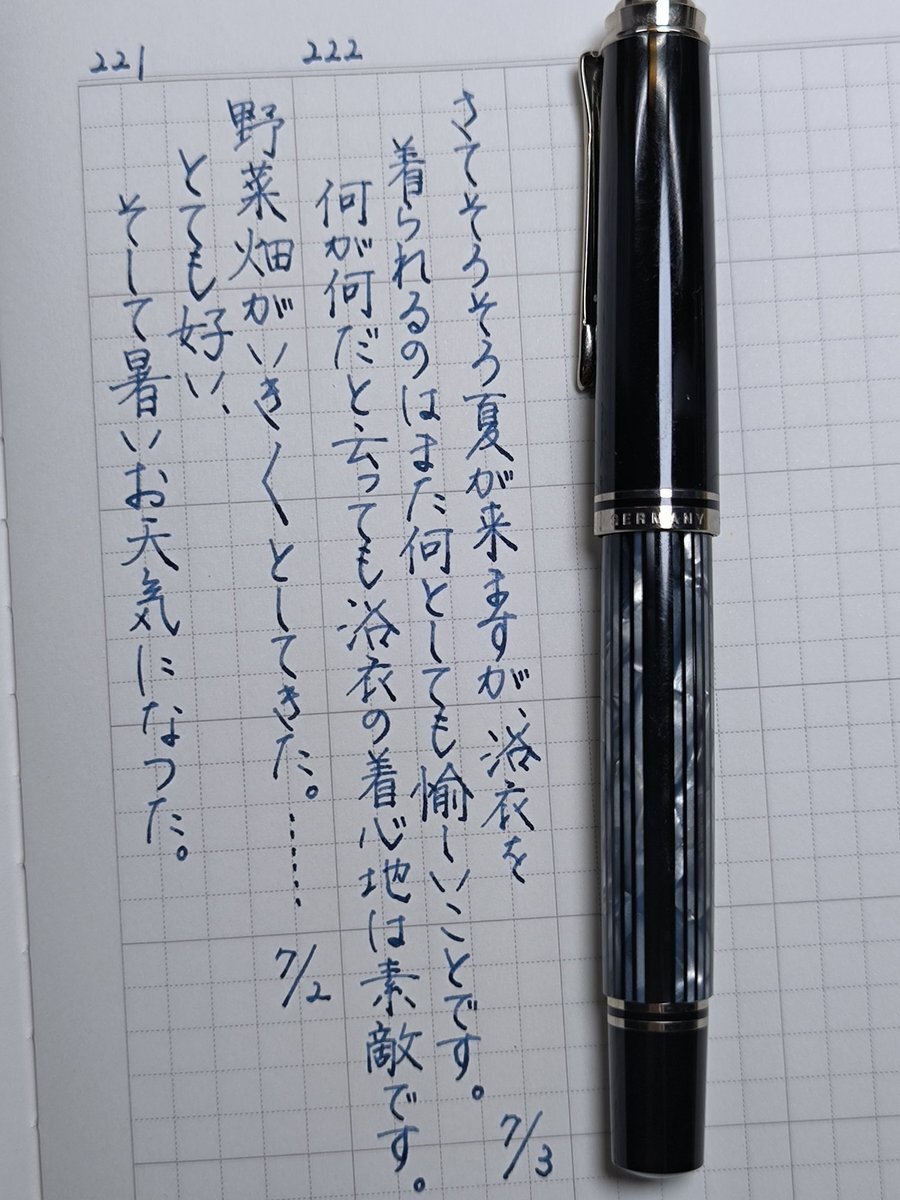 222
さてそろそろ夏が来ますが、浴衣を
着られるのはまた何としても愉しいことです。
何が何だと云っても浴衣の着心地は素敵です。
7/3
221
野菜畑がいき〱としてきた。……
とても好い、
そして暑いお天気になつた。
7/2
GERMANY